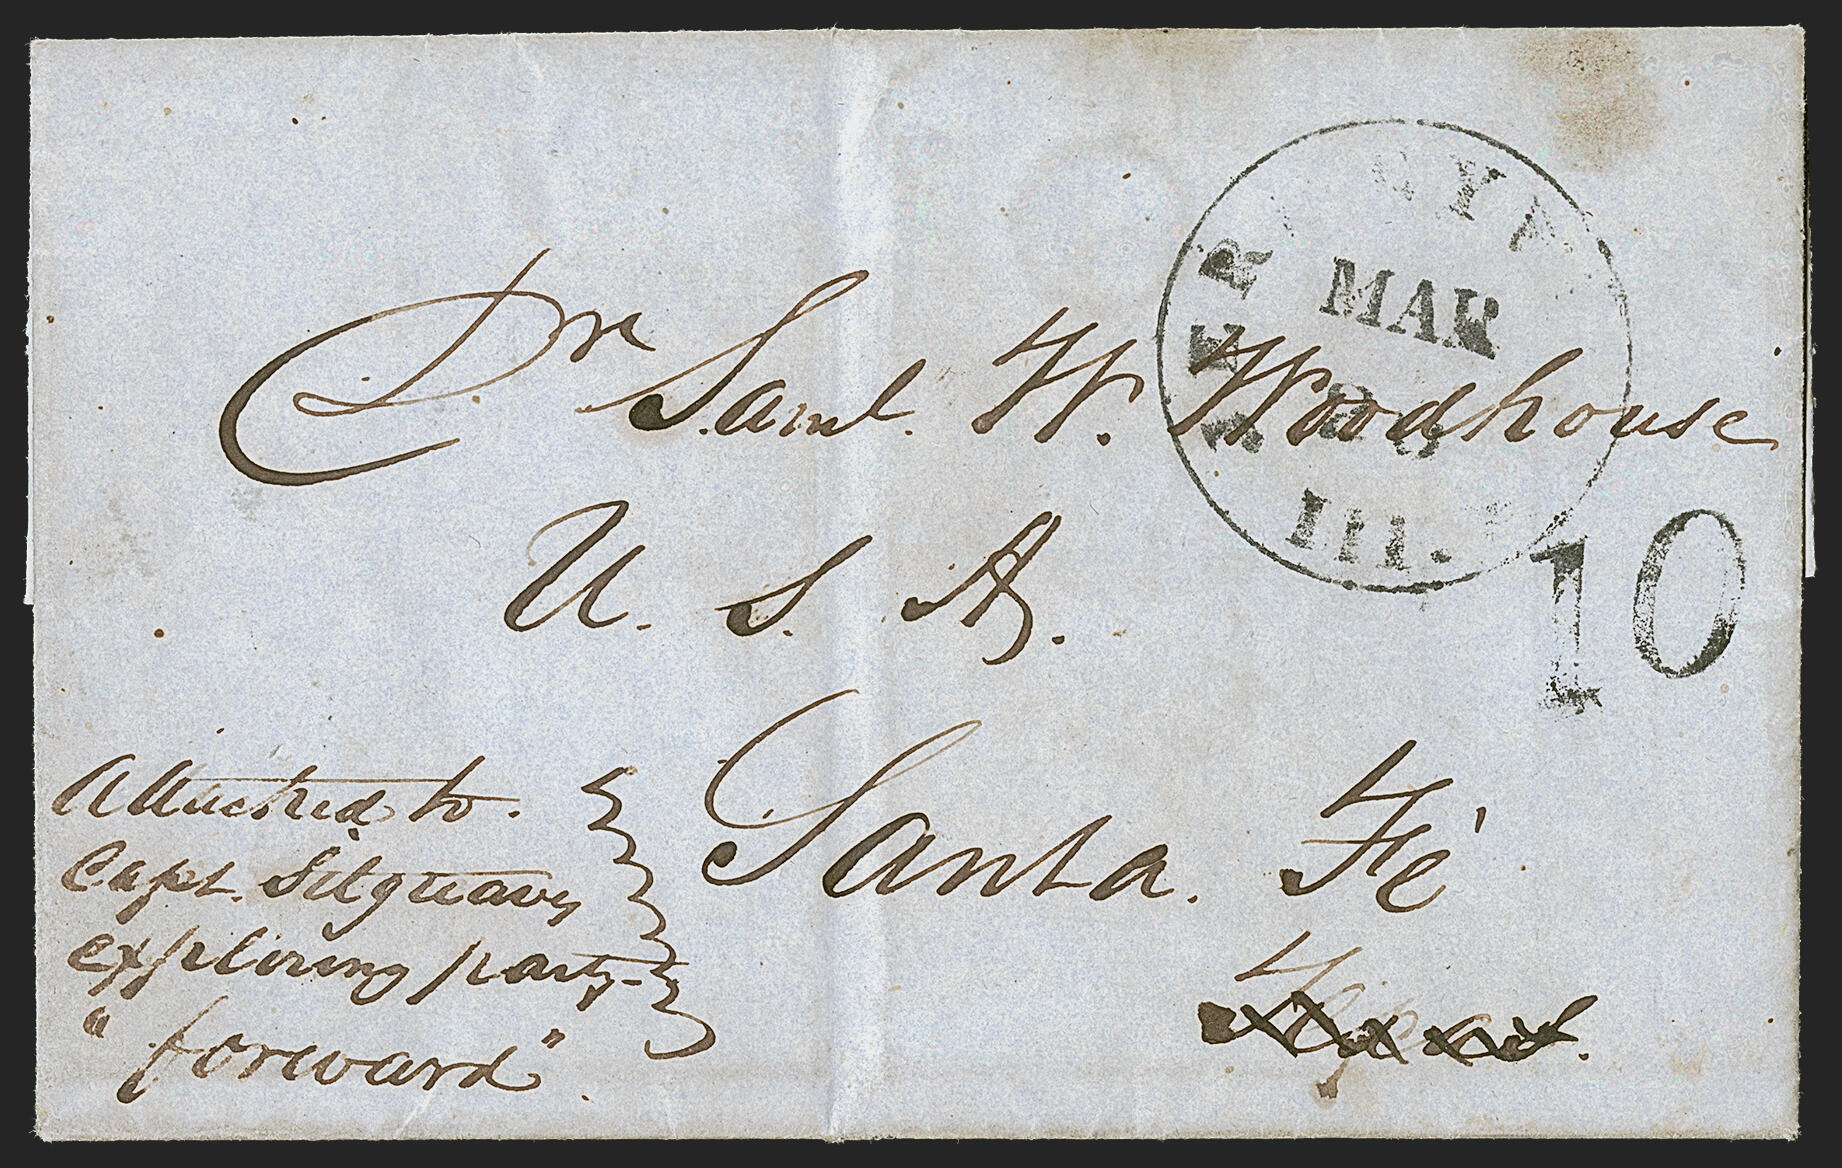 MAR
Ill.
10
Dr Saml. W. Woodhouse
U. S. A.
Santa. Fé
Texas.
Attached to.
Capt. Sitgreaves
exploring party-
"forward".